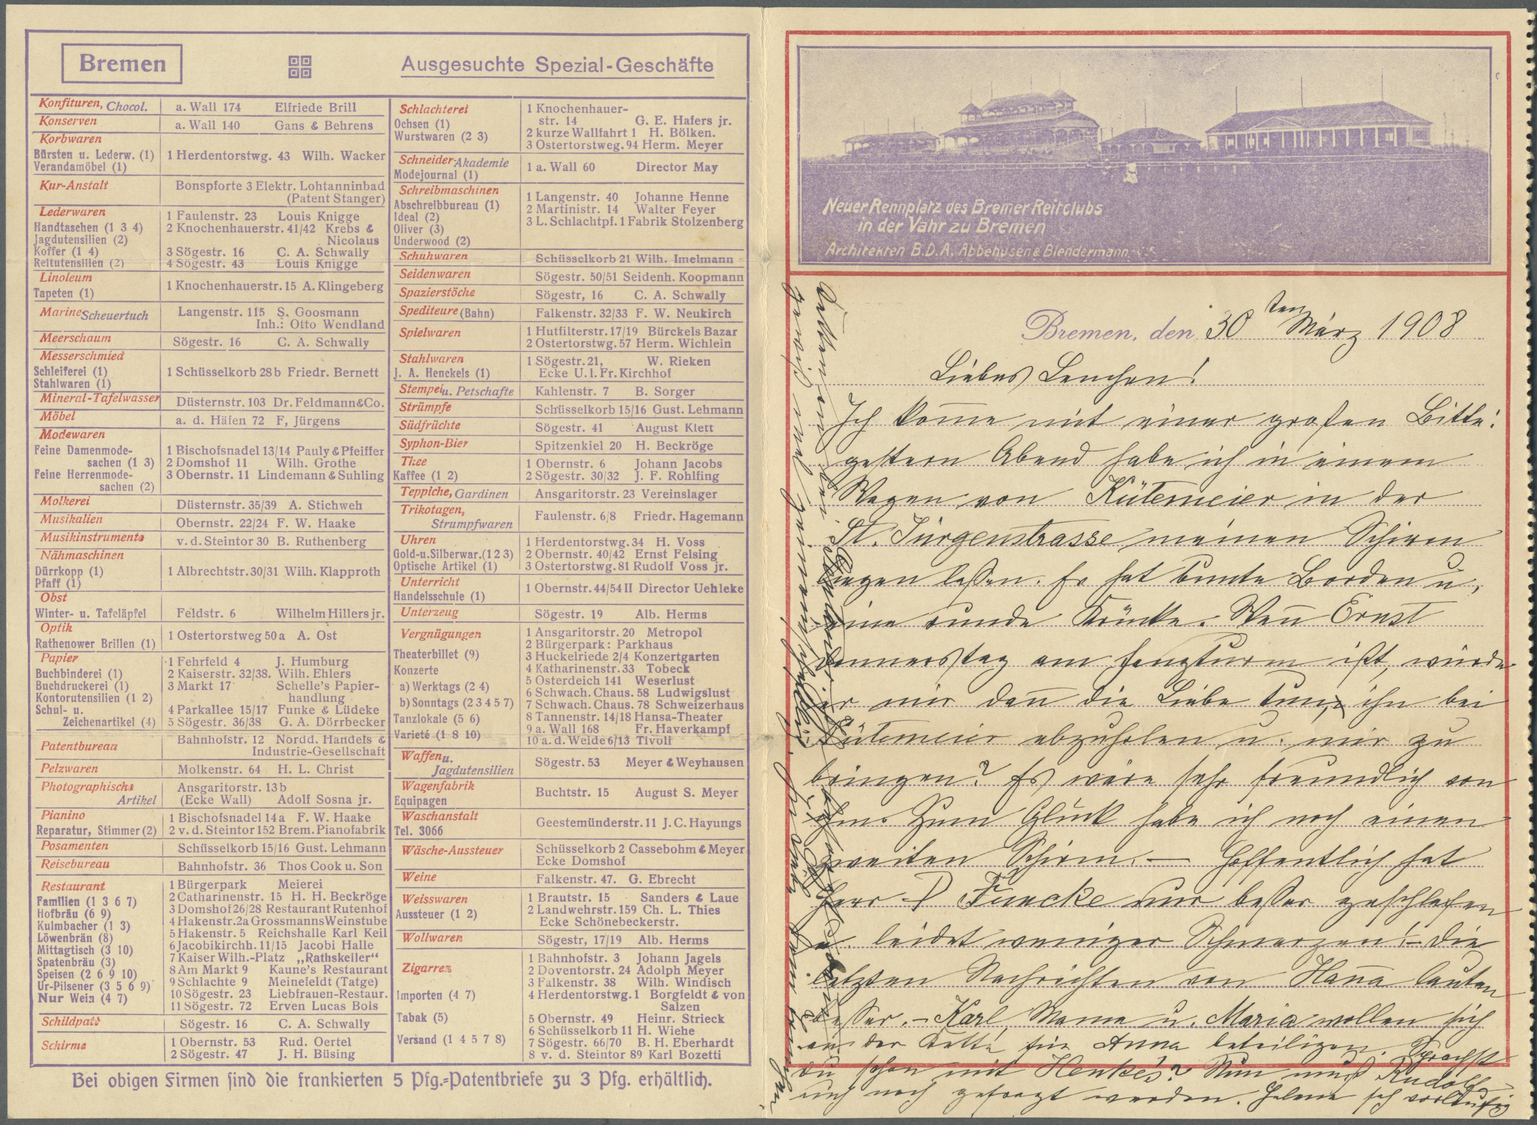 Bremen
Ausgesuchte Spezial-Geschäfte
Konfituren, Chocol. a. Wall 174 Elfriede Brill
Konserven a. Wall 140 Gans & Behrens
Korbwaren
Bürsten u. Lederw. (1) 1 Herdentorstwg. 43 Wilh. Wacker
Verandamöbel (1)
Kur-Anstalt Bonspforte 3 Elektr. Lohtanninbad
(Patent Stanger)
Lederwaren 1 Faulenstr. 23 Louis Knigge
Handtaschen (1 3 4) 2 Knochenhauerstr. 41/42 Krebs &
Jagdutensilien (2) Nicolaus
Koffer (1 4) 3 Sögestr. 16 C. A. Schwally
Reitutensilien (2) 4 Sögestr. 43 Louis Knigge
Linoleum 1 Knochenhauerstr. 15 A. Klingeberg
Tapeten (1)
Marine Scheuertuch Langenstr. 115 S. Goosmann
Inh.: Otto Wendland
Meerschaum Sögestr. 16 C. A. Schwally
Messerschmied
Schleiferei (1) 1 Schüsselkorb 28b Friedr. Bernett
Stahlwaren (1)
Mineral-Tafelwasser Düsternstr. 103 Dr. Feldmann & Co.
Möbel a. d. Häfen 72 F, Jürgens
Modewaren
Feine Damenmode- 1 Bischofsnadel 13/14 Pauly & Pfeiffer
sachen (1 3) 2 Domshof 11 Wilh. Grothe
Feine Herrenmode- 3 Obernstr. 11 Lindemann & Suhling
sachen (2)
Molkerei Düsternstr. 35/39 A. Stichweh
Musikalien Obernstr. 22/24 F. W. Haake
Musikinstrumente v. d. Steintor 30 B. Ruthenberg
Nähmaschinen
Dürrkopp (1) 1 Albrechtstr. 30/31 Wilh. Klapproth
Pfaff (1)
Obst
Winter- u. Tafeläpfel Feldstr. 6 Wilhelm Hillers jr.
Optik
Rathenower Brillen (1) 1 Ostertorstweg 50a A. Ost
Papier 1 Fehrfeld 4 J. Humburg
Buchbinderei (1) 2 Kaiserstr. 32/38. Wilh. Ehlers
Buchdruckerei (1) 3 Markt 17 Schelle's Papier-
Kontorutensilien (1 2) handlung
Schul- u. 4 Parkallee 15/17 Funke & Lüdeke
Zeichenartikel (4) 5 Sögestr. 36/38 G. A. Dörrbecker
Patentbureau Bahnhofstr. 12 Nordd. Handels &
Industrie-Gesellschaft
Pelzwaren Molkenstr. 64 H. L. Christ
Photographische Ansgaritorstr. 13b
Artikel (Ecke Wall) Adolf Sosna jr.
Pianino 1 Bischofsnadel 14a F. W. Haake
Reparatur, Stimmer (2) 2 v. d. Steintor 152 Brem. Pianofabrik
Posamenten Schüsselkorb 15/16 Gust. Lehmann
Reisebureau Bahnhofstr. 36 Thos Cook u. Son
Restaurant 1 Bürgerpark Meierei
Familien (1 3 6 7) 2 Catharinenstr. 15 H. H. Beckröge
Hofbräu (6 9) 3 Domshof 26/28 Restaurant Rutenhof
Kulmbacher (1 3) 4 Hakenstr. 2a Grossmanns Weinstube
Löwenbräu (8) 5 Hakenstr. 5 Reichshalle Karl Keil
Mittagtisch (3 10) 6 Jacobikirchh. 11/15 Jacobi Halle
Spatenbräu (3) 7 Kaiser Wilh.-Platz „Rathskeller“
Speisen (2 6 9 10) 8 Am Markt 9 Kaune's Restaurant
Ur-Pilsener (3 5 6 9) 9 Schlachte 9 Meinefeldt (Tatge)
Nur Wein (4 7) 10 Sögestr. 23 Liebfrauen-Restaur.
11 Sögestr. 72 Erven Lucas Bols
Schildpatt Sögestr. 16 C. A. Schwally
Schirme 1 Obernstr. 53 Rud. Oertel
2 Sögestr. 47 J. H. Büsing
Schlachterei 1 Knochenhauer-
Ochsen (1) str. 14 G. E. Hafers jr.
Wurstwaren (2 3) 2 kurze Wallfahrt 1 H. Bölken.
3 Ostertorstweg. 94 Herm. Meyer
Schneider Akademie 1 a. Wall 60 Director May
Modejournal (1)
Schreibmaschinen
Abschreibbureau (1) 1 Langenstr. 40 Johanne Henne
Ideal (2) 2 Martinistr. 14 Walter Feyer
Oliver (3) 3 L. Schlachtpf. 1 Fabrik Stolzenberg
Underwood (2)
Schuhwaren Schüsselkorb 21 Wilh. Imelmann
Seidenwaren Sögestr. 50/51 Seidenh. Koopmann
Spazierstöcke Sögestr, 16 C. A. Schwally
Spediteure (Bahn) Falkenstr. 32/33 F. W. Neukirch
Spielwaren 1 Hutfilterstr. 17/19 Bürckels Bazar
2 Ostertorstwg. 57 Herm. Wichlein
Stahlwaren 1 Sögestr. 21, W. Rieken
J. A. Henckels (1) Ecke U. l. Fr. Kirchhof
Stempel u. Petschafte Kahlenstr. 7 B. Sorger
Strümpfe Schüsselkorb 15/16 Gust. Lehmann
Südfrüchte Sögestr. 41 August Klett
Syphon-Bier Spitzenkiel 20 H. Beckröge
Thee 1 Obernstr. 6 Johann Jacobs
Kaffee (1 2) 2 Sögestr. 30/32 J. F. Rohlfing
Teppiche, Gardinen Ansgaritorstr. 23 Vereinslager
Trikotagen, Faulenstr. 6/8 Friedr. Hagemann
Strumpfwaren
Uhren 1 Herdentorswg. 34 H. Voss
Gold-u. Silberwar. (1 2 3) 2 Obernstr. 40/42 Ernst Felsing
Optische Artikel (1) 3 Ostertorswg. 81 Rudolf Voss jr.
Unterricht 1 Obernstr. 44/54 II Director Uehleke
Handelsschule (1)
Unterzeug Sögestr. 19 Alb. Herms
Vergnügungen 1 Ansgaritorstr. 20 Metropol
2 Bürgerpark: Parkhaus
Theaterbillet (9) 3 Huckelriede 2/4 Konzertgarten
Konzerte 4 Katharinenstr. 33 Tobeck
a) Werktags (2 4) 5 Osterdeich 141 Weserlust
6 Schwach. Chaus. 58 Ludwigslust
b) Sonntags (2 3 4 5 7) 7 Schwach. Chaus. 78 Schweizerhaus
Tanzlokale (5 6) 8 Tannenstr. 14/18 Hansa-Theater
9 a. Wall 168 Fr. Haverkampf
Varieté (1 8 10) 10 a. d. Weide 6/13 Tivoli
Waffen u. Sögestr. 53 Meyer & Weyhausen
Jagdutensilien
Wagenfabrik Buchtstr. 15 August S. Meyer
Equipagen
Waschanstalt Geestemünderstr. 11 J. C. Hayungs
Tel. 3066
Wäsche-Aussteuer Schüsselkorb 2 Cassebohm & Meyer
Ecke Domshof
Weine Falkenstr. 47. G. Ebrecht
Weisswaren 1 Brautstr. 15 Sanders & Laue
Aussteuer (1 2) 2 Landwehrstr. 159 Ch. L. Thies
Ecke Schönebeckerstr.
Wollwaren Sögestr, 17/19 Alb. Herms
Zigarren 1 Bahnhofstr. 3 Johann Jagels
2 Doventorstr. 24 Adolph Meyer
3 Falkenstr. 38 Wilh. Windisch
Importen (4 7) 4 Herdentorswg. 1 Borgfeldt & von
Salzen
Tabak (5) 5 Obernstr. 49 Heinr. Strieck
6 Schüsselkorb 11 H. Wiehe
Versand (1 4 5 7 8) 7 Sögestr. 66/70 B. H. Eberhardt
8 v. d. Steintor 89 Karl Bozetti
Bei obigen Firmen sind die frankierten 5 Pfg.-Patentbriefe zu 3 Pfg. erhältlich.
Neuer Rennplatz des Bremer Reitclubs
in der Vahr zu Bremen
Architekten B.D.A. Abbehusen & Blendermann
Bremen, den 30ten März 1908
Liebes Lenchen!
Ich kom̅e mit einer großen Bitte:
gestern Abend habe ich in einem
Wagen von Kütemeier in der
St. Jürgenstrasse meinen Schirm
liegen laßen. Er hat bunte Borden u.
eine runde Krücke. Wen̅ Ernst
Donnerstag am Fangturm ist, würde
er mir dan̅ die Liebe tun, ihn bei
Kütemeier abzuholen u. mir zu
bringen? Es wäre sehr freundlich von
ihm. Zum Glück habe ich noch einen
zweiten Schirm. — Hoffentlich hat
Herr P Funcke nur beßer geschlafen
u. leidet weniger Schmerzen! – Die
letzten Nachrichten von Han̅a lauten
beßer. – Karl, Mama u. Maria wollen sich
an der Kette für Anna beteiligen. Sprachst
Du schon mit Henkes? Nun muß Rudolf
auch noch gefragt werden. Helene sich vorläufig